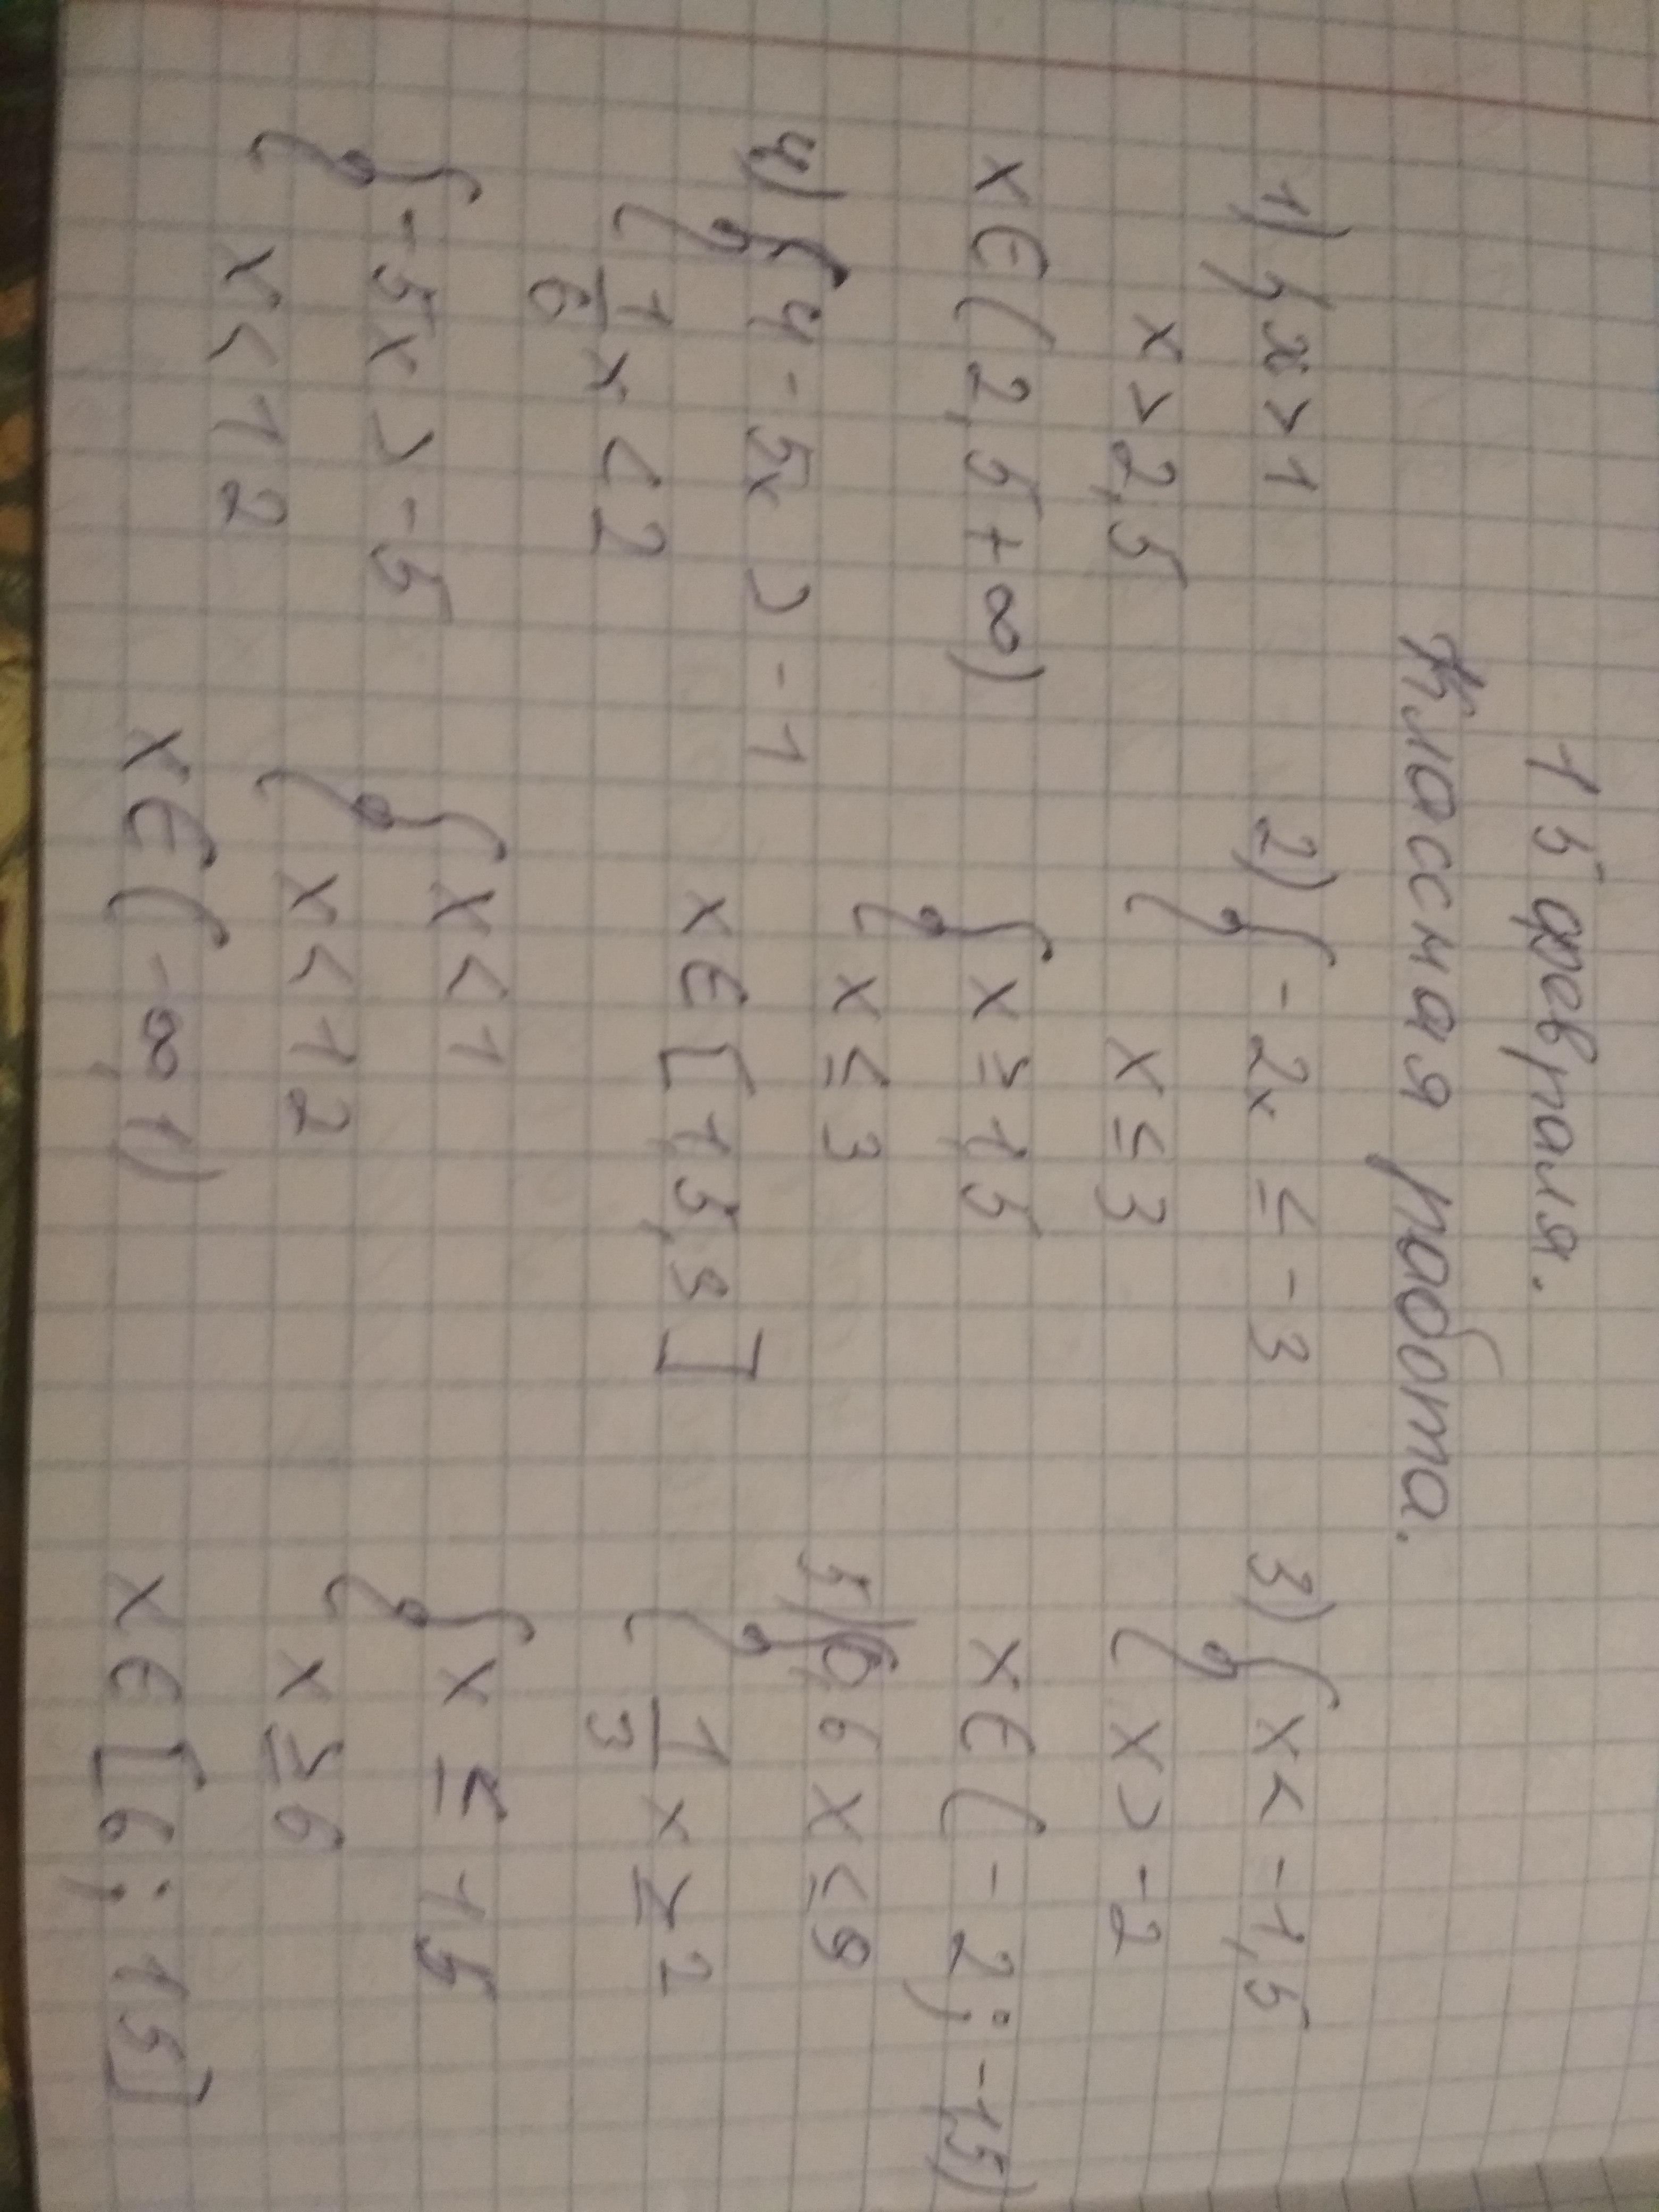 15 февраля.
Классная работа.
1) { x > 1
x > 2,5
x ∈ (2,5 + ∞)
2) { -2x ≤ -3
x ≤ 3
{ x ≥ 1,5
x ≤ 3
x ∈ [1,5, 3]
3) { x < -1,5
x > -2
x ∈ (-2; -1,5)
4) { 4 - 5x > -1
1/6 x < 2
{ -5x > -5
x < 12
{ x < 1
x < 12
x ∈ (-∞, 1)
5) { 0,6x ≤ 9
1/3 x ≥ 2
{ x ≤ 15
x ≥ 6
x ∈ [6; 15]